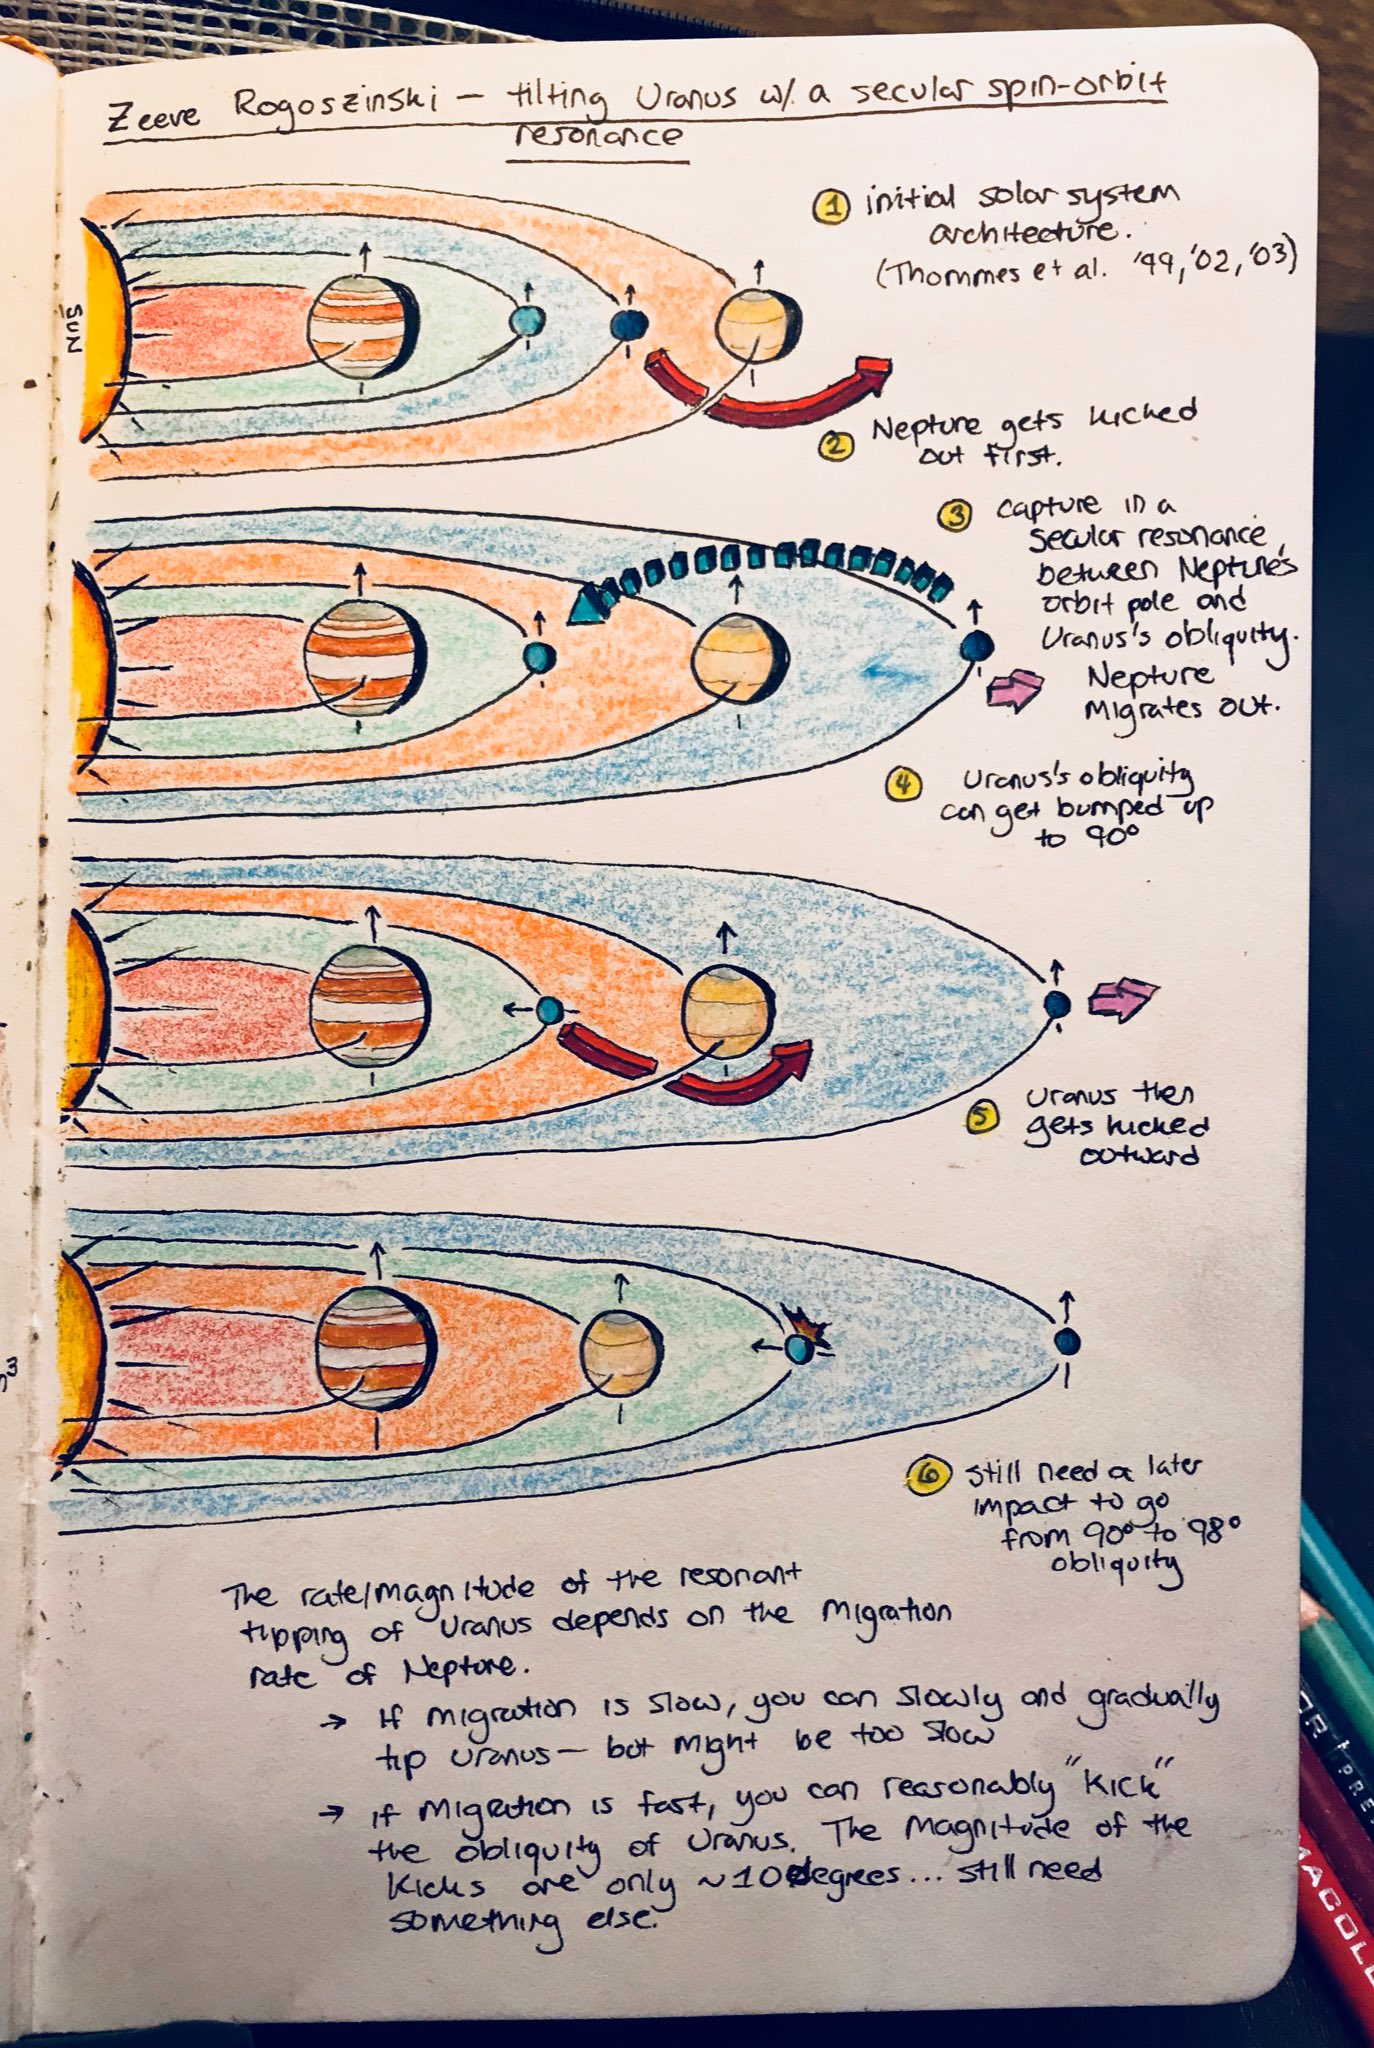 Zeeve Rogoszinski – tilting Uranus w/ a secular spin-orbit
resonance
SUN
1 initial solar system
architecture.
(Thommes et al. '99, '02, '03)
2 Neptune gets kicked
out first.
3 capture in a
secular resonance
between Neptune's
orbit pole and
Uranus's obliquity.
Neptune
Migrates out.
4 Uranus's obliquity
can get bumped up
to 90°
5 Uranus then
gets kicked
outward
6 still need a later
impact to go
from 90° to 98°
obliquity
The rate/magnitude of the resonant
tipping of Uranus depends on the migration
rate of Neptune.
→ If migration is slow, you can slowly and gradually
tip Uranus – but might be too slow
→ if migration is fast, you can reasonably "kick"
the obliquity of Uranus. The magnitude of the
kicks are only ~10 degrees... still need
something else.